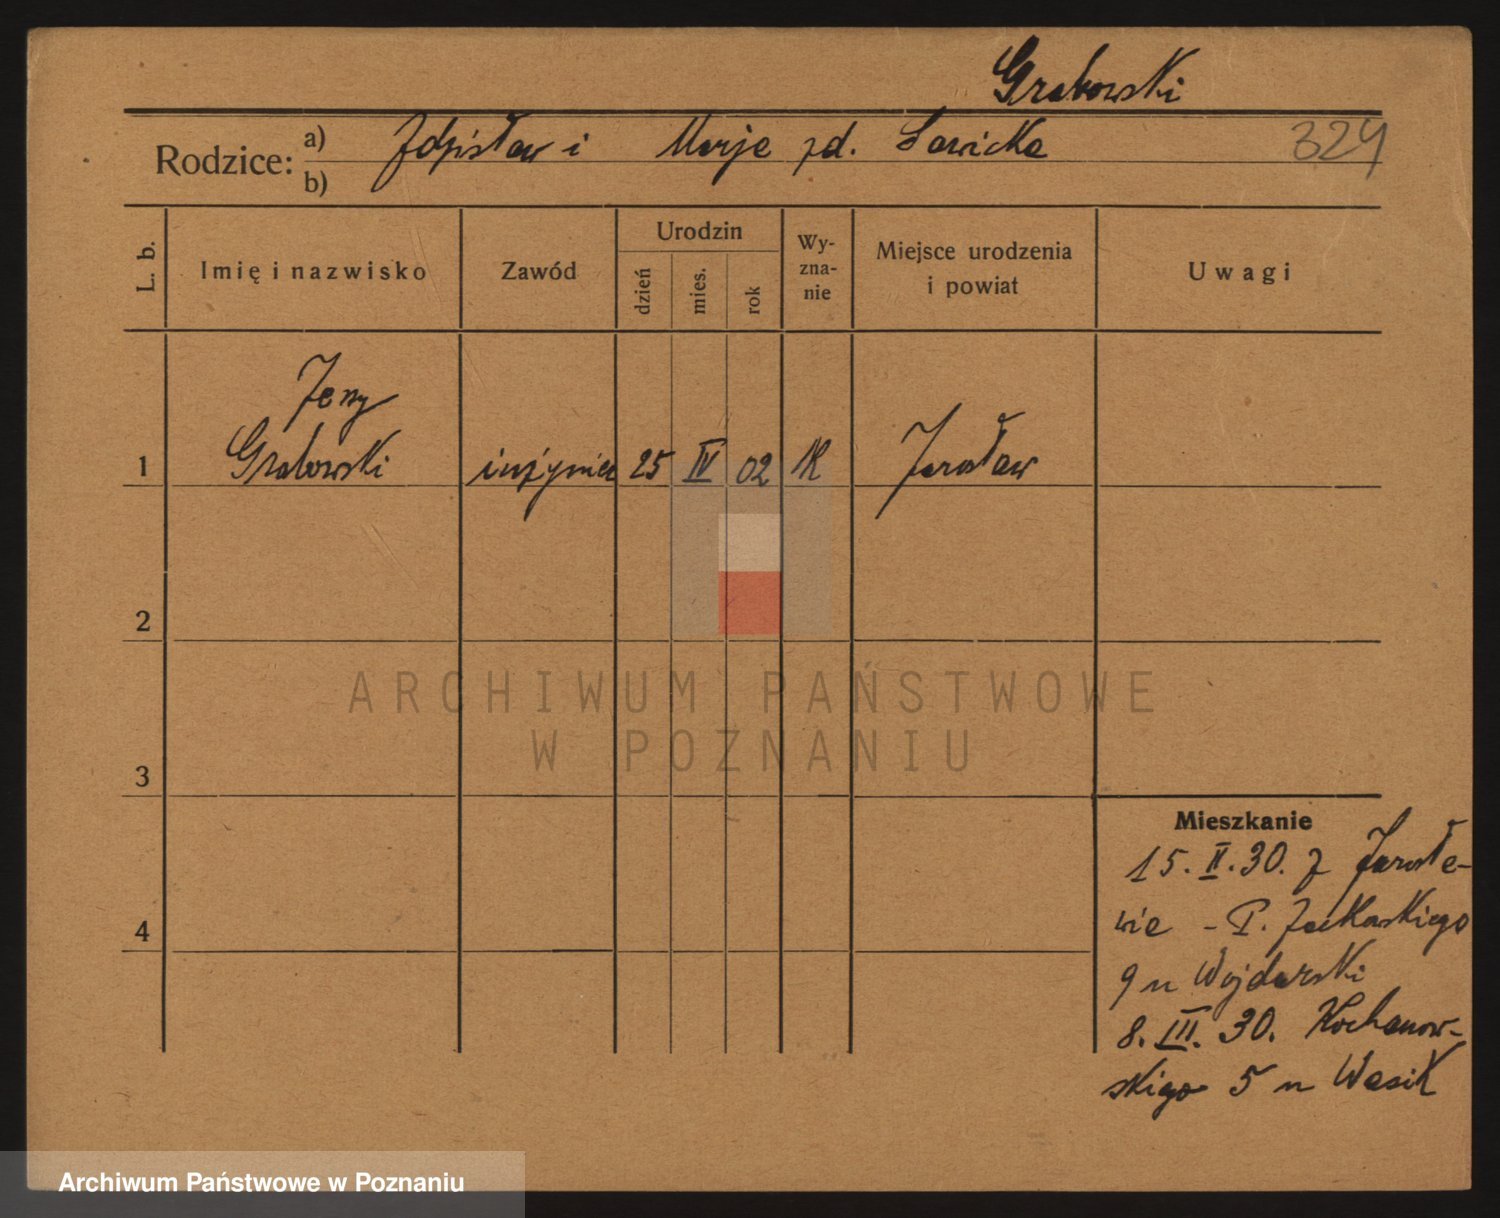 Grabowski
Rodzice: a) Zdzisław i Marja zd. Sawicka 324
b)
L. b. Imię i nazwisko Zawód Urodzin dzień mies. rok Wy-zna-nie Miejsce urodzenia i powiat Uwagi
Jerzy
1 Grabowski inżynier 25 IV 02 rk Jarosław
2
ARCHIWUM PAŃSTWOWE
W POZNANIU
3
4
Mieszkanie
15. II. 30. z Jarosła-
wia - P. Jackowskiego
9 u Wojdarski
8. III. 30. Kochanow-
skiego 5 u Wasik
Archiwum Państwowe w Poznaniu